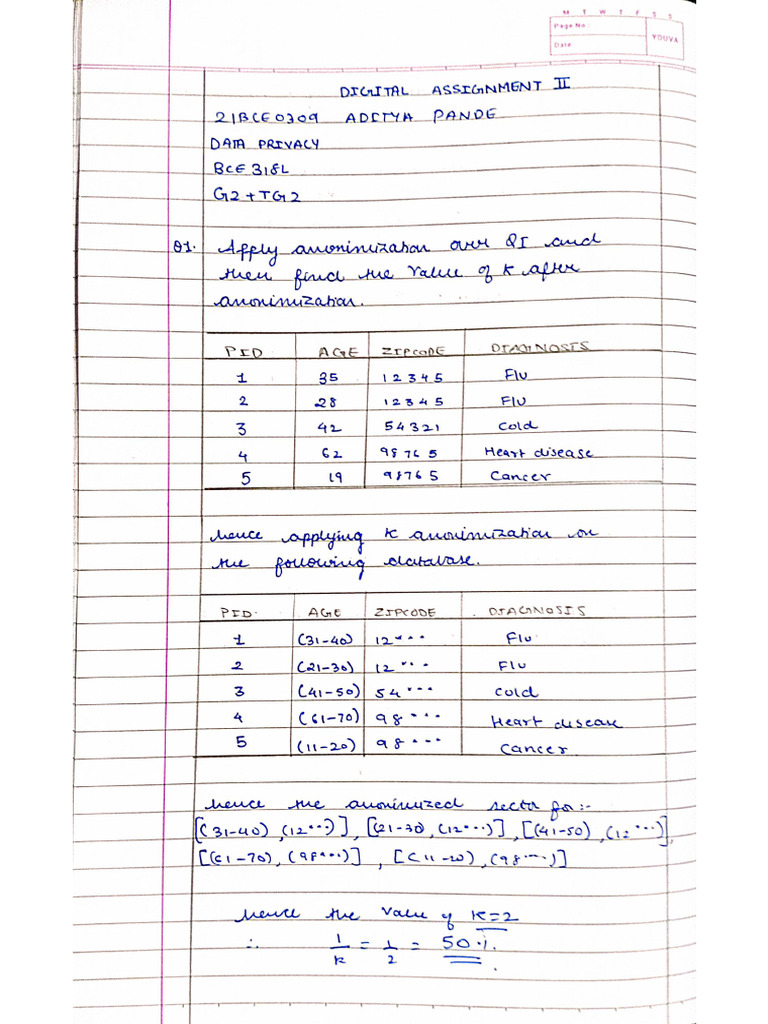 M T W T F S S
Page No.:
Date:
YOUVA
DIGITAL ASSIGNMENT II
21BCE0309 ADITYA PANDE
DATA PRIVACY
BCE318L
G2+TG2
Q1. Apply anonimization over QI and
then find the value of K after
anonimization.
PID AGE ZIPCODE DIAGNOSIS
1 35 12345 Flu
2 28 12345 Flu
3 42 54321 Cold
4 62 98765 Heart disease
5 19 98765 Cancer
hence applying K anonimization on
the following database.
PID. AGE ZIPCODE DIAGNOSIS
1 (31-40) 12*** Flu
2 (21-30) 12*** Flu
3 (41-50) 54*** Cold
4 (61-70) 98*** Heart disease
5 (11-20) 98*** Cancer
hence the anonimized sector for:-
[(31-40),(12***)], [(21-30,(12***)], [(41-50),(12***)],
[(61-70),(98***)], [(11-20),(98***)]
hence the value of K=2
∴ 1/K = 1/2 = 50%.